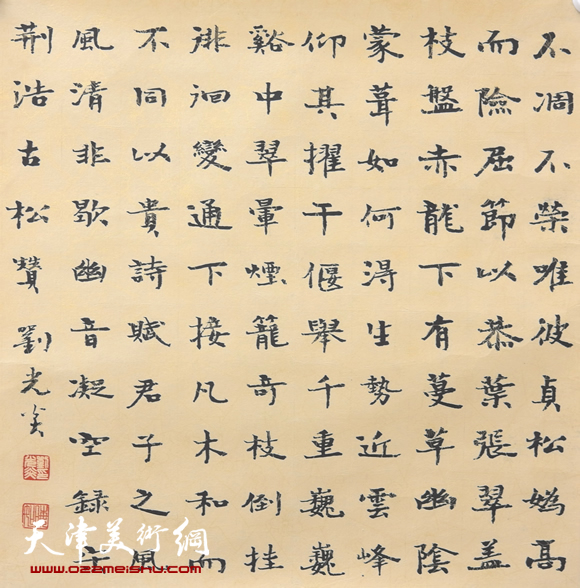 不凋不榮唯彼貞松高
而險屈節以恭葉張翠盖
枝盤赤龍下有蔓草幽陰
蒙葺如何淂生勢近雲峰
仰其擢干偃舉千重巍巍
谿中翠暈煙籠奇枝倒挂
徘徊變通下接凡木和而
不同以貴詩賦君子之風
風清非歇幽音凝空録
荆浩古松贊 劉光
天津美術網
www.022meishu.com